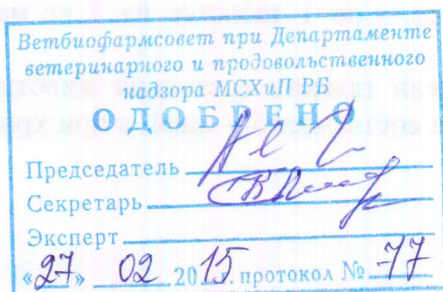 Ветбиофармсовет при Департаменте
ветеринарного и продовольственного
надзора МСХиП РБ
ОДОБРЕНО
Председатель
Секретарь
Эксперт
«27» 02 2015. протокол № 77